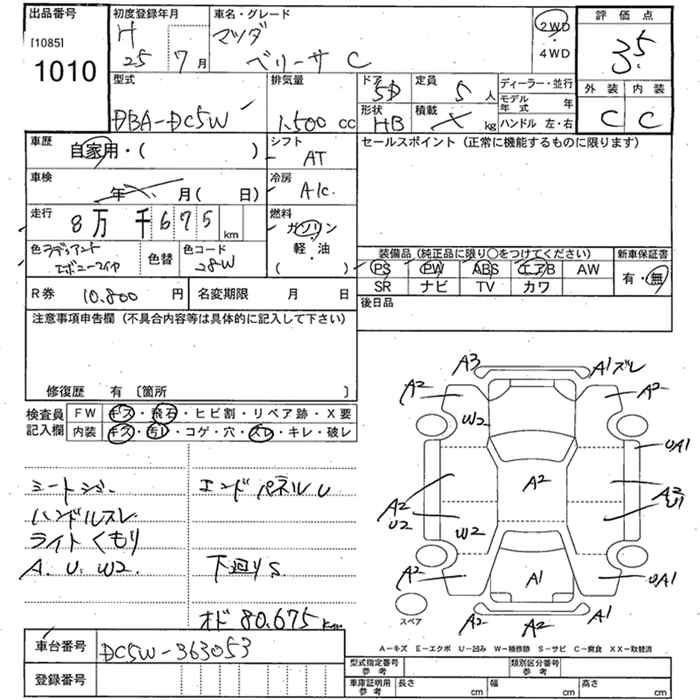 出品番号
[1085]
1010
初度登録年月
H
25年7月
車名・グレード
マツダ
ベリーサ C
2WD
4WD
評価点
3.5
外装 内装
C C
型式
DBA-DC5W
排気量
1,500 cc
ドア 5D
形状 HB
定員 5 人
積載 kg
ディーラー・並行
モデル年式 年
ハンドル 左・右
車歴
自家用・( )
シフト
AT
車検
年 月(日)
冷房
A/C
走行
8万千675 km
燃料
ガソリン
軽・油
( ・ )
色 ラディアント
エボニーマイカ
色替
色コード
28W
セールスポイント(正常に機能するものに限ります)
装備品(純正品に限り○をつけてください)
PS PW ABS エアB AW
SR ナビ TV カワ
新車保証書
有・無
R券 10,800円
名変期限 月 日
後日品
注意事項申告欄(不具合内容等は具体的に記入して下さい)
修復歴 有〔箇所 〕
検査員記入欄
FW キズ・飛石・ヒビ割・リペア跡・X要
内装 キズ・汚レ・コゲ・穴・スレ・キレ・破レ
シートシミ
ハンドルスレ
ライトくもり
A. U. W2.
エンドパネルU
下廻りS
オド 80,675 Km
A3
A1ズレ
A2
A2
W2
UA1
A2
A2
U2
A2
U1
W2
A2
A1
UA1
A2
A2
A1
スペア
A-キズ E-エクボ U-凹み W-補修跡 S-サビ C-腐食 XX-取替済
車台番号
DC5W-363053
登録番号
型式指定番号 参考
類別区分番号 参考
車庫証明用 参考
長さ cm
幅 cm
高さ cm